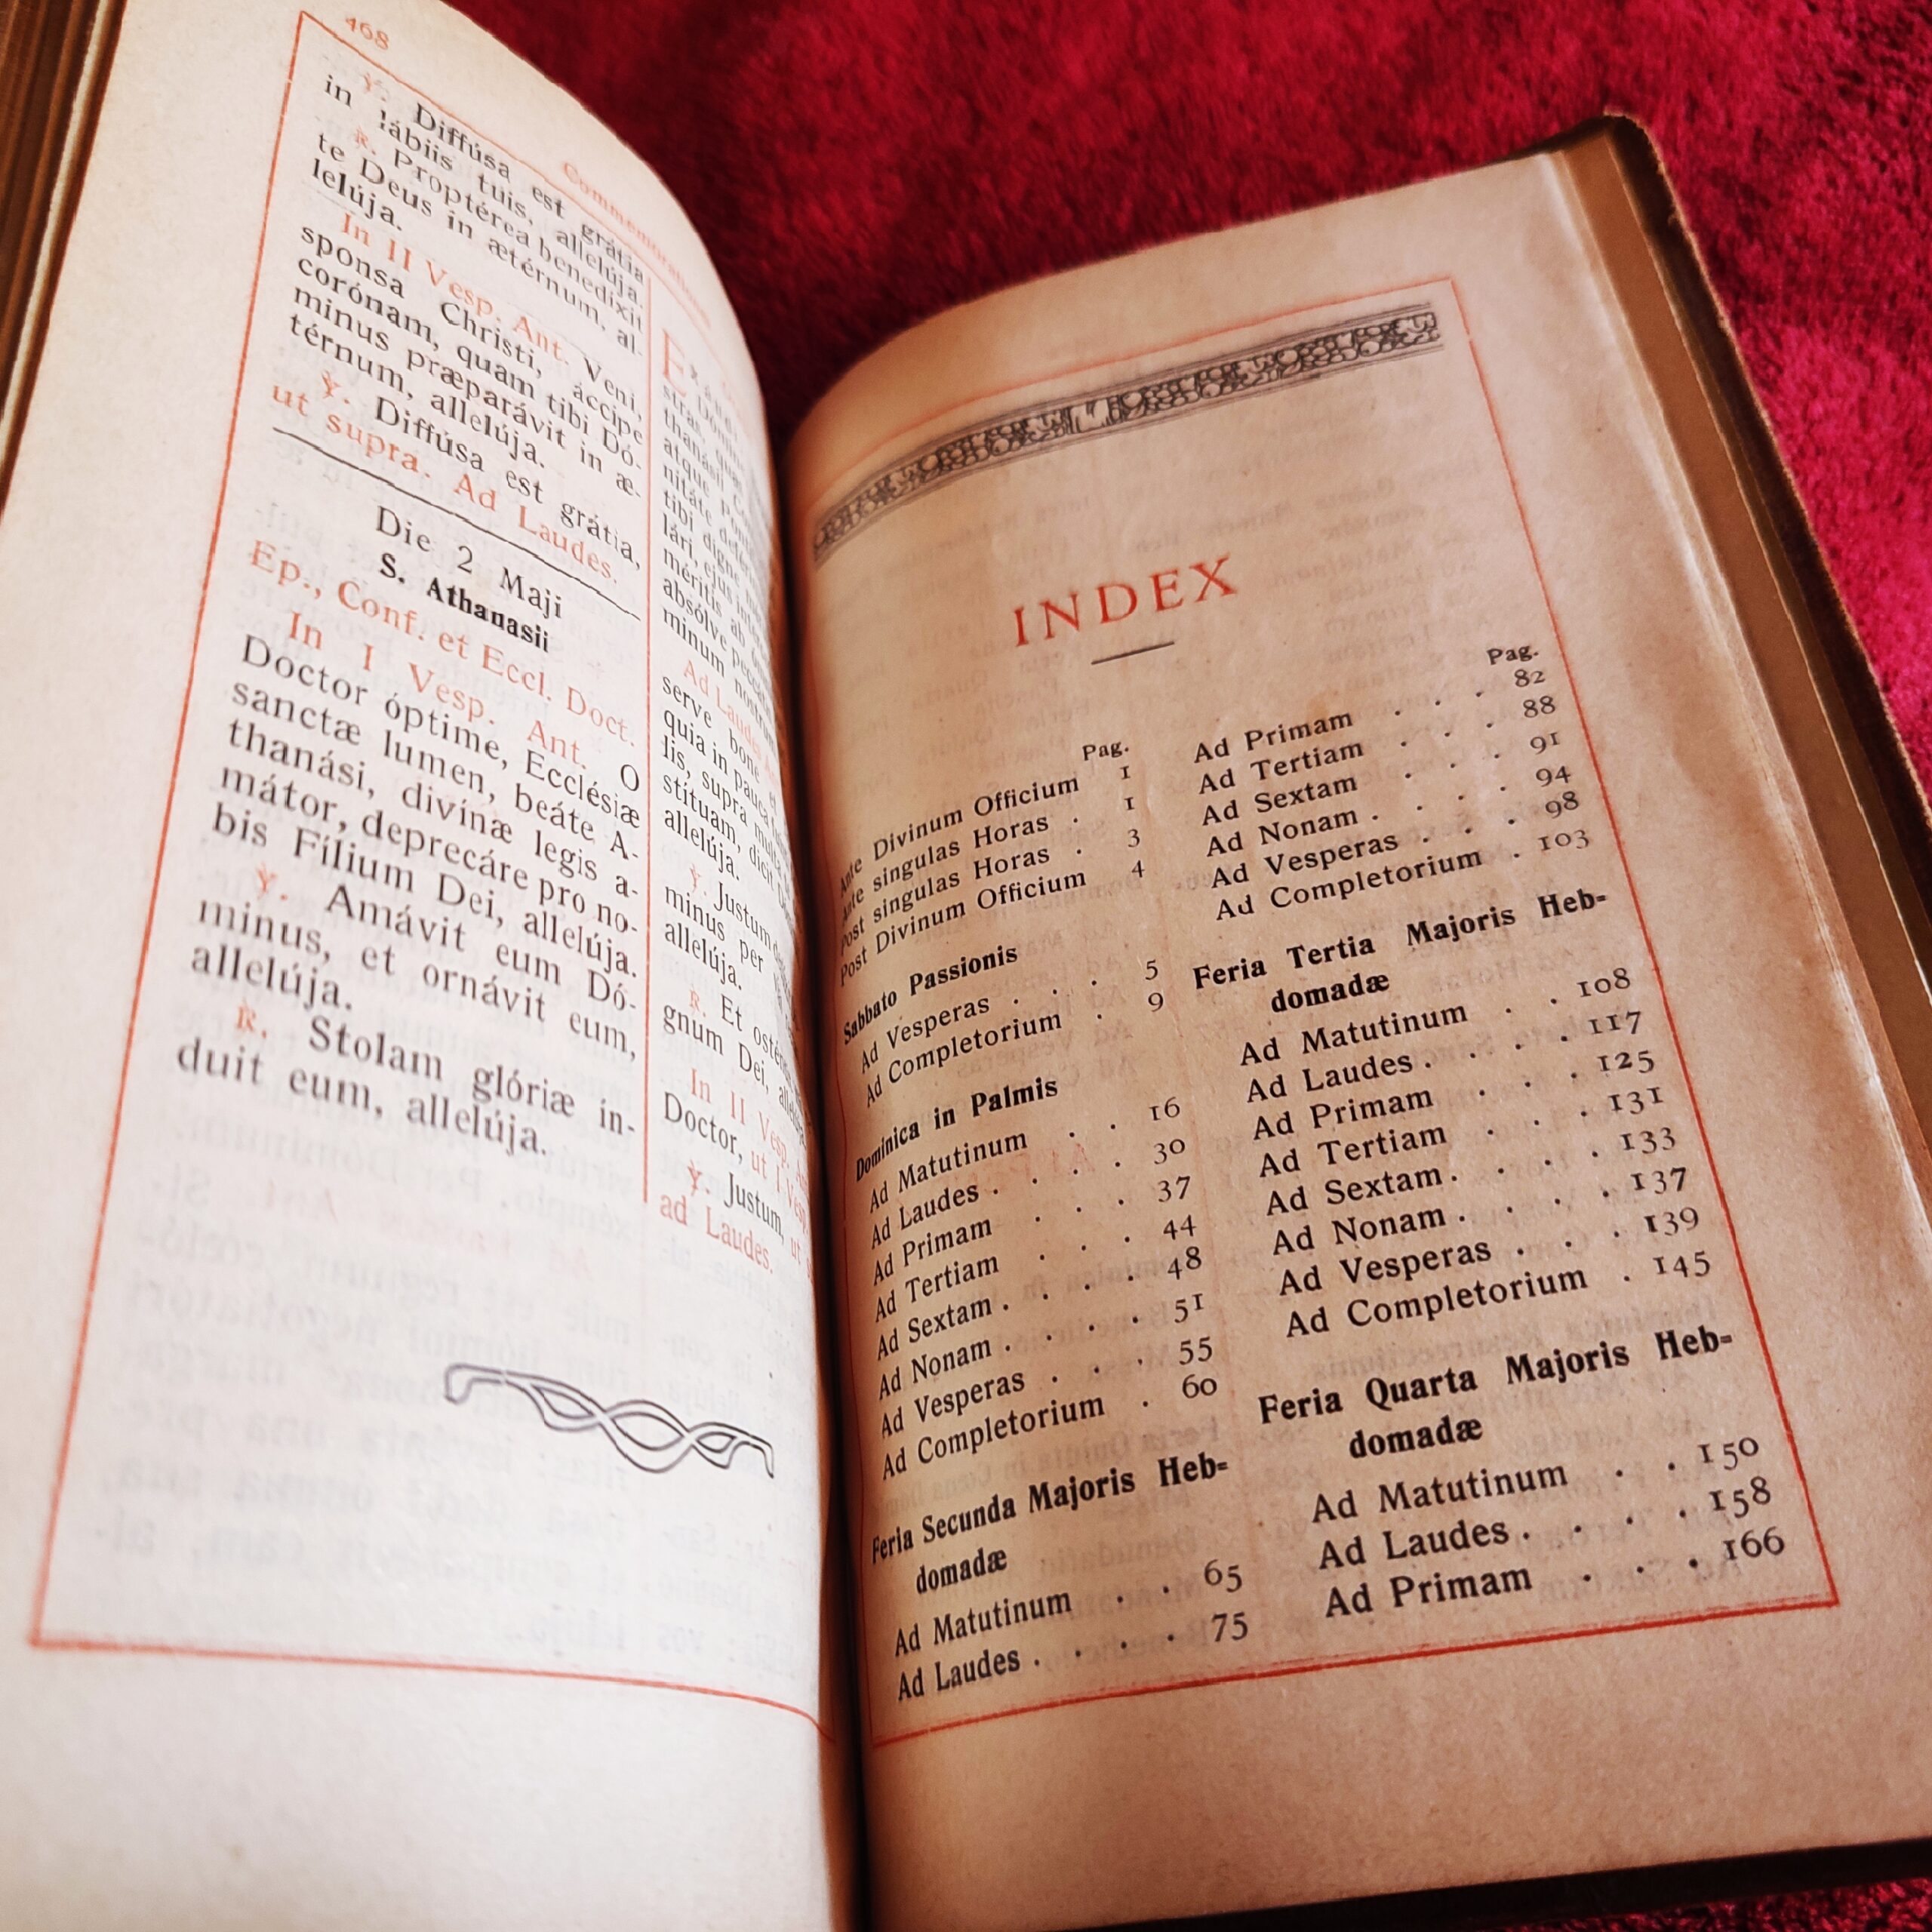 468
Commemorationes
℣. Diffúsa est grátia
in lábiis tuis, allelúja.
℟. Proptérea benedíxit
te Deus in ætérnum, al-
lelúja.
In II Vesp. Ant. Veni,
sponsa Christi, áccipe
corónam, quam tibi Dó-
minus præparávit in æ-
térnum, allelúja.
℣. Diffúsa est grátia,
ut supra. Ad Laudes.
Die 2 Maji
S. Athanasii
Ep., Conf. et Eccl. Doct.
In I Vesp. Ant. O
Doctor óptime, Ecclésiæ
sanctæ lumen, beáte A-
thanási, divínæ legis a-
mátor, deprecáre pro no-
bis Fílium Dei, allelúja.
℣. Amávit eum Dó-
minus, et ornávit eum,
allelúja.
℟. Stolam glóriæ ín-
duit eum, allelúja.
atque
tibi digne
méritis ab
absólve
minum nostrum
Ad Laudes
serve bone et
quia in pauca
lis, supra multa
stítuam, dicit
allelúja.
℣. Justum
minus per
allelúja.
℟. Et
gnum Dei,
In II Vesp.
Doctor, ut I Vesp.
℣. Justum, ut
ad Laudes.
INDEX
Pag.
Ante Divinum Officium 1
Ante singulas Horas . 1
Post singulas Horas . 3
Post Divinum Officium 4
Sabbato Passionis
Ad Vesperas . . . 5
Ad Completorium . 9
Dominica in Palmis
Ad Matutinum . . 16
Ad Laudes . . . . 30
Ad Primam . . . 37
Ad Tertiam . . . 44
Ad Sextam . . . . 48
Ad Nonam . . . . 51
Ad Vesperas . . . 55
Ad Completorium . 60
Feria Secunda Majoris Heb-
domadæ
Ad Matutinum . . 65
Ad Laudes . . . . 75
Pag.
Ad Primam . . . 82
Ad Tertiam . . . 88
Ad Sextam . . . 91
Ad Nonam . . . . 94
Ad Vesperas . . . 98
Ad Completorium . 103
Feria Tertia Majoris Heb-
domadæ
Ad Matutinum . . 108
Ad Laudes . . . . 117
Ad Primam . . . 125
Ad Tertiam . . . 131
Ad Sextam . . . . 133
Ad Nonam . . . . 137
Ad Vesperas . . . 139
Ad Completorium . 145
Feria Quarta Majoris Heb-
domadæ
Ad Matutinum . . 150
Ad Laudes . . . . 158
Ad Primam . . . 166